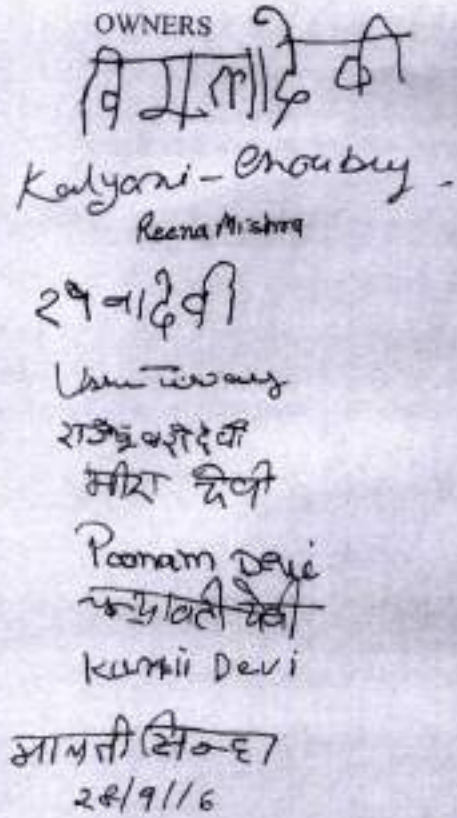 OWNERS
विमला देवी
Kalyani - Choubey -
Reena Mishra
देवी
Usha Tiwary
राजेश्वरी देवी
मीरा देवी
Poonam Devi
चन्द्रावती देवी
Devi
मालती सिन्हा
28/9/16